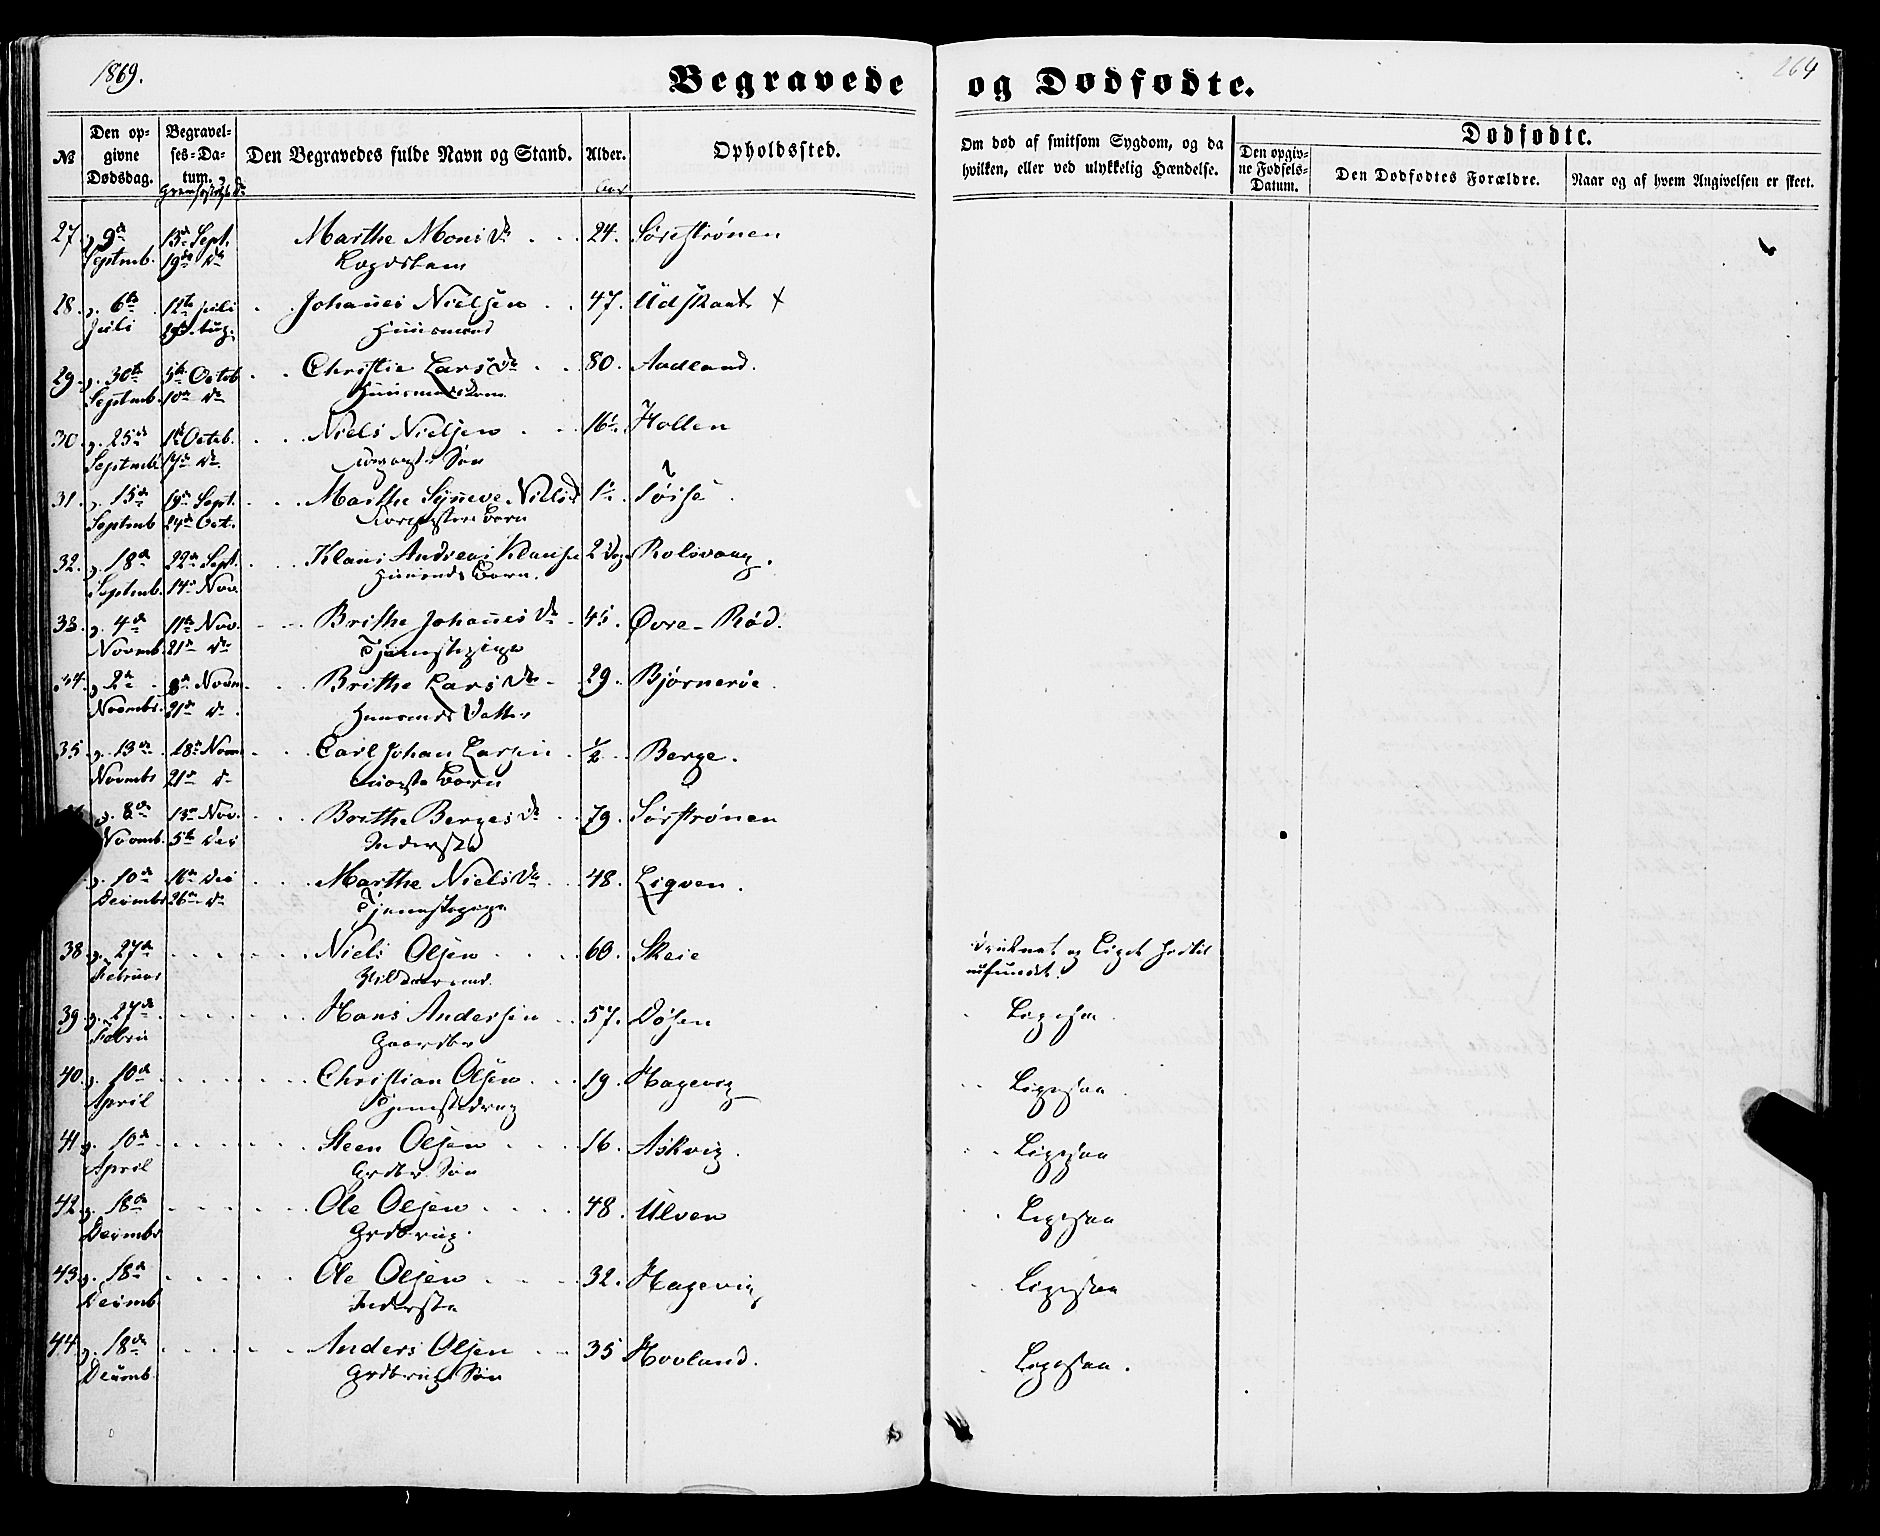 1869.
Begravede og Dødfødte.
264
№
Den opgivne Dødsdag.
Begravelses-Datum.
Den Begravedes fulde Navn og Stand.
Alder.
Opholdssted.
Om død af smitsom Sygdom, og da hvilken, eller ved ulykkelig Hændelse.
Dødfødte.
Den opgivne Fødsels-Datum.
Den Dødfødtes Forældre.
Naar og af hvem Angivelsen er skeet.
Aar
27. 9de 13de Sept. Marthe Mons Dr 24. Sørestrønen
Septmb. 19de Do
28. 6te 12te Juli Johannes Nielsen 47. Udskaat
Juli Huusmand
29. 30te 5te Octob Christie Lars Dr 80. Aadland.
Septmb. 10de Do
30. 25de Octob. Niels Nielsen Hollen
Septmb 17de Do Søn
31. 15de 19de Sept. Marthe Synneve Niels
Septmb 24de Oct. Barn
32. 18de 22de Sept. Klaus Andreas Klausen 2 Rolsvaag.
Septmb. 14de Nov. Barn.
33. 4de 11te Nov. Brithe Johannes Dr 45. Øvre-Rød.
Novmb. 21de Do Tjenestepige
34. 2den 8de Novm. Brithe Lars Dr 29. Bjørnerøe.
Novmb. 21de Do Datter
35. 13de 18de Novm Carl Johan Larsen ½ Berge.
Novmb 21de Do Barn
8de 13de Nov. Brithe Berges Dr 79. Sørstrønen
Novmb. 5te Dec Inderste
10de 16de Dec Marthe Niels Dr 48. Liqven.
Decmbr 26de Do Tjenestepige
38. 27de Niels Olsen 60. Skeie Druknet og Liget hertil
Februar ufundet.
39. 27de Hans Andersen 57. Døsen Ligesaa
Febru Gaardbr
40. 10de Christian Olsen 19. Hagevig Ligesaa
April Tjenestedreng
41. 10de Steen Olsen 16. Askvig. Ligesaa
April Grdbr. Søn
42. 18de Ole Olsen 48. Ulven Ligesaa
Decmbr Grdbrug.
43. 18de Ole Olsen 32. Hagevig Ligesaa
Decmb. Inderste
44. 18de Anders Olsen 35 Hovland. Ligesaa.
Decmb. Grdbrug. Søn